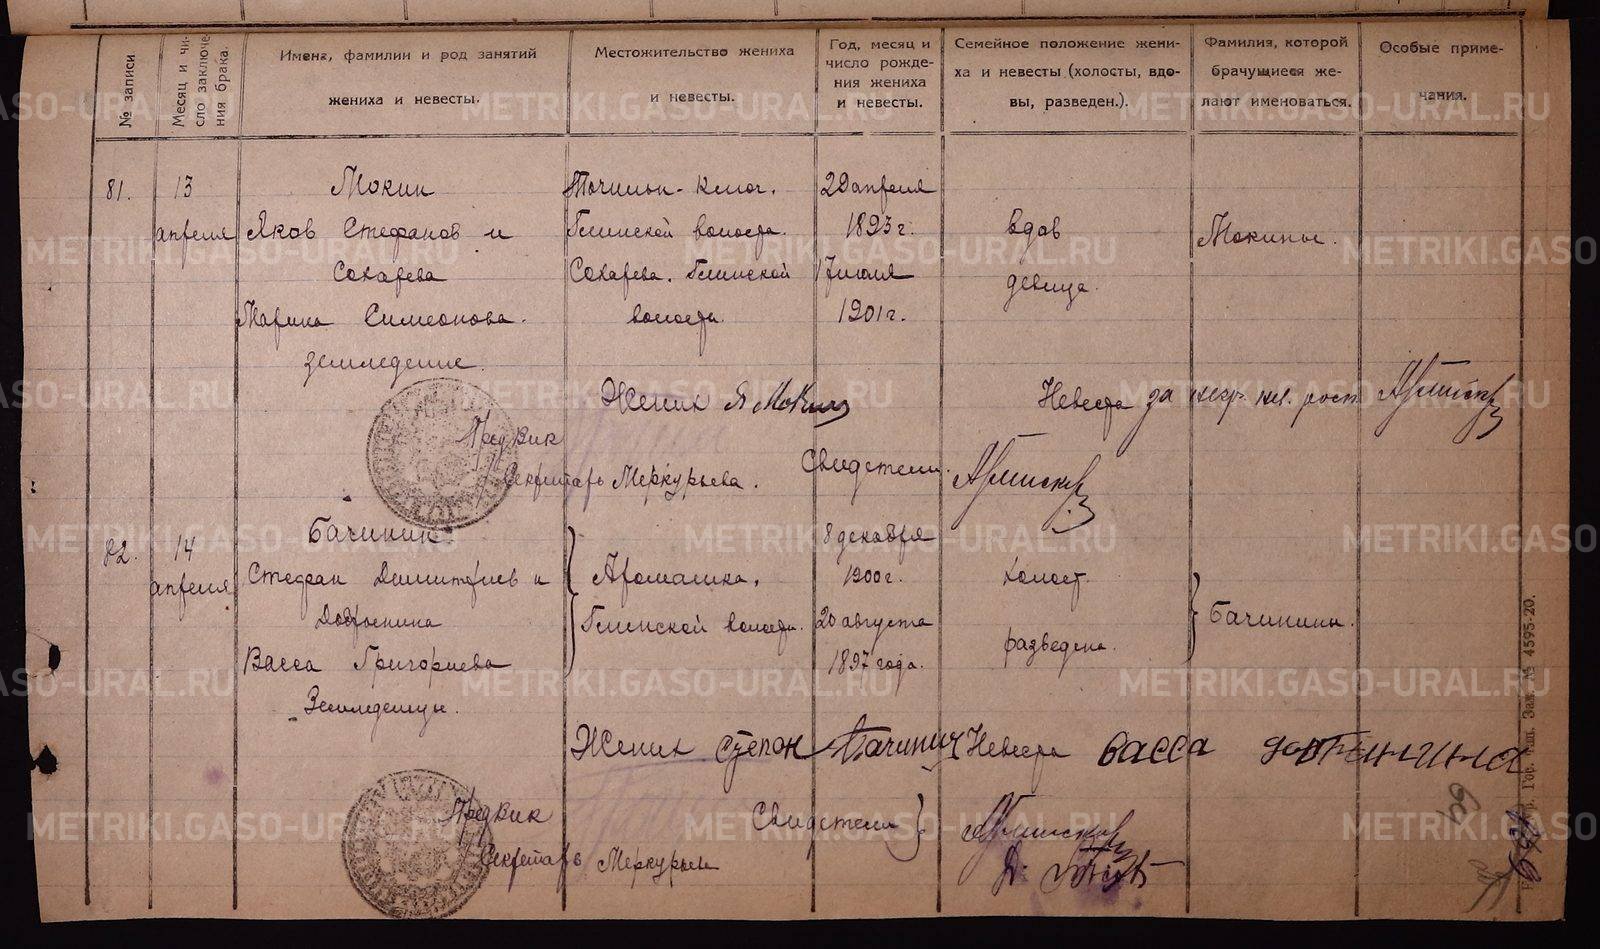 № записи
Месяц и чи-
сло заключе-
ния брака.
Имена, фамилии и род занятий
жениха и невесты.
Местожительство жениха
и невесты.
Год, месяц и
число рожде-
ния жениха
и невесты.
Семейное положение жени-
ха и невесты (холосты, вдо-
вы, разведен.).
Фамилия, которой
брачущиеся же-
лают именоваться.
Особые приме-
чания.
81.
13
апреля
Мокин
Яков Стефанов и
Сохарева
Марина Симеонова.
земледелие.
Точильн-Ключ.
Глинской волости.
Сохарева. Глинской
волости.
1893 г.
17 июля
1901 г.
вдов
девица.
Мокины.
Жених Я Мокин
Невеста за негр.
Предвик
Секретарь Меркурьева.
Свидетели.
82.
14
апреля
Бачинин
Стефан Димитриев и
Васса Григориева
Земледельцы.
Аромашка,
Глинской волости.
8 декабря
1900 г.
20 августа
1897 года.
холост.
разведена.
Бачинины.
Жених степон Бачинин Невеста васса
Предвик
Секретарь Меркурьева
Свидетели
Зак. № 4595-20.
METRIKI.GASO-URAL.RU